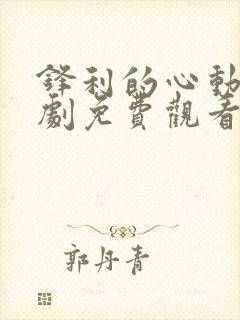 鋒利的心動
劇免費觀看
郭丹青